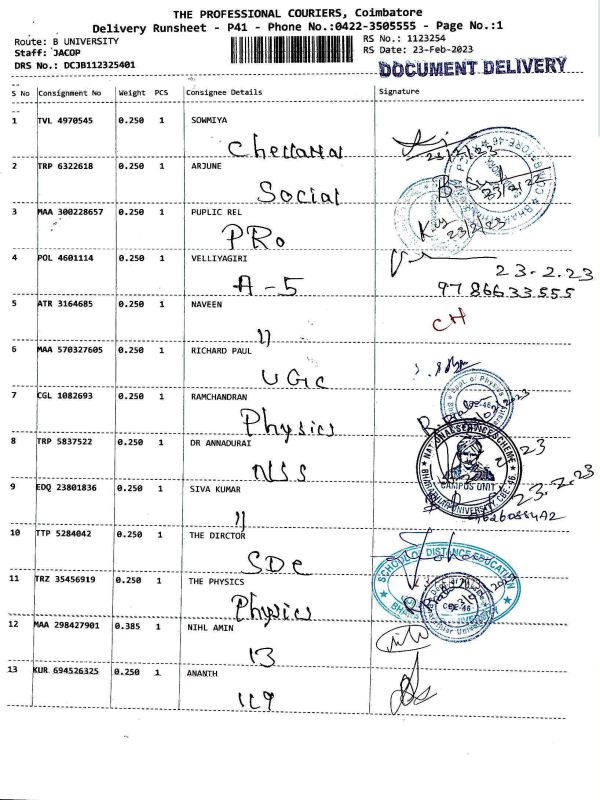 THE PROFESSIONAL COURIERS, Coimbatore
Delivery Runsheet - P41 - Phone No.:0422-3505555 - Page No.:1
Route: B UNIVERSITY
RS No.: 1123254
Staff: JACOP
RS Date: 23-Feb-2023
DRS No.: DCJB112325401
DOCUMENT DELIVERY
S No Consignment No Weight PCS Consignee Details Signature
1 TVL 4970545 0.250 1 SOWMIYA
23/2/23
2 TRP 6322618 0.250 1 ARJUNE
Social
23/2/23
3 MAA 300228657 0.250 1 PUPLIC REL
PRo
23/2/23
4 POL 4601114 0.250 1 VELLIYAGIRI
A-5
23.2.23
9786633555
5 ATR 3164685 0.250 1 NAVEEN
CH
11
6 MAA 570327605 0.250 1 RICHARD PAUL
UGC
7 CGL 1082693 0.250 1 RAMCHANDRAN
Physics
Dept. of Physics
CBE-46
8 TRP 5837522 0.250 1 DR ANNADURAI
NSS
NATIONAL SERVICE SCHEME
CAMPUS UNIT
BHARATHIAR UNIVERSITY CBE-46
23.2.23
9 EDQ 23801836 0.250 1 SIVA KUMAR
11
10 TTP 5284042 0.250 1 THE DIRCTOR
SDE
SCHOOL OF DISTANCE EDUCATION
11 TRZ 35456919 0.250 1 THE PHYSICS
Physics
CBE-46
12 MAA 298427901 0.385 1 NIHL AMIN
13
13 KUR 694526325 0.250 1 ANANTH
119